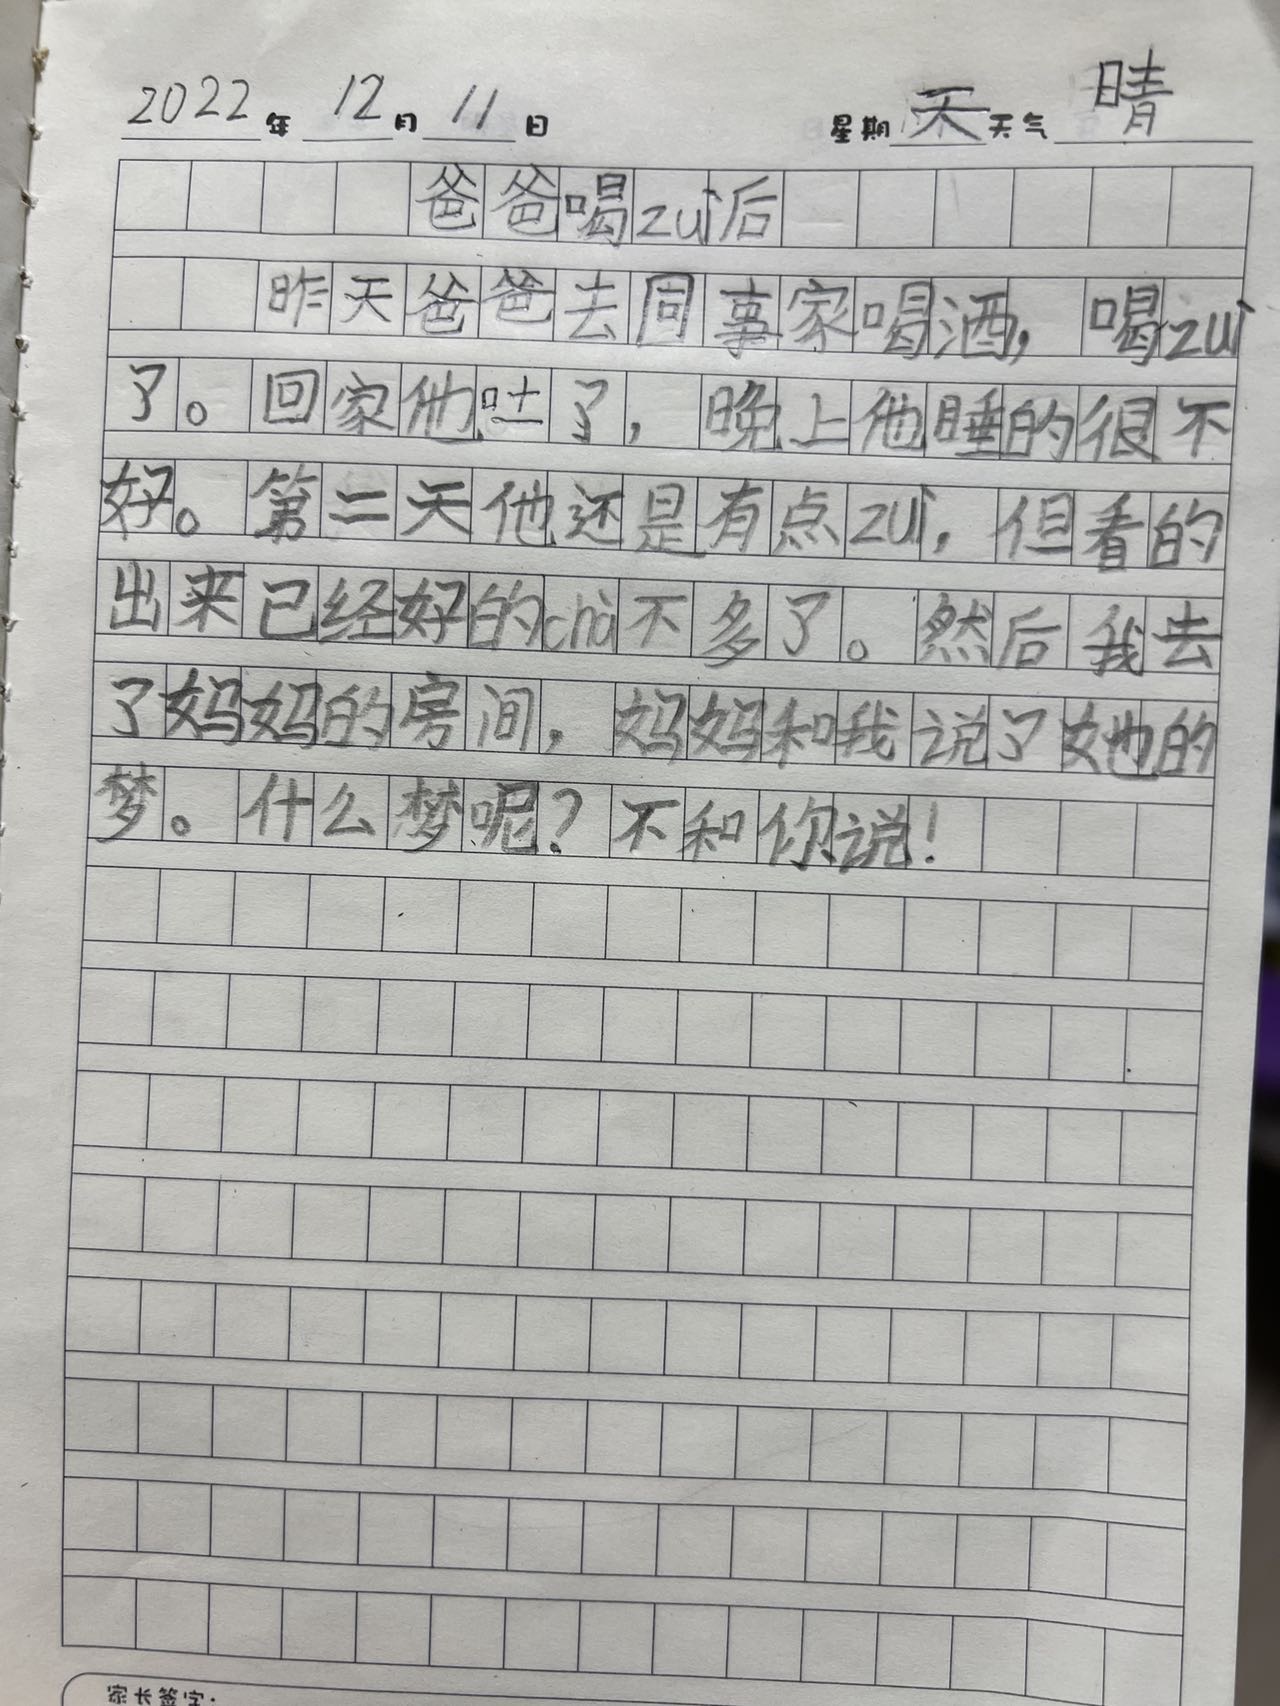 2022年12月11日 星期天 天气晴
爸爸喝zuì后
昨天爸爸去同事家喝酒，喝zuì
了。回家他吐了，晚上他睡的很不
好。第二天他还是有点zuì，但看的
出来已经好的chà不多了。然后我去
了妈妈的房间，妈妈和我说了她的
梦。什么梦呢？不和你说！
家长签字：